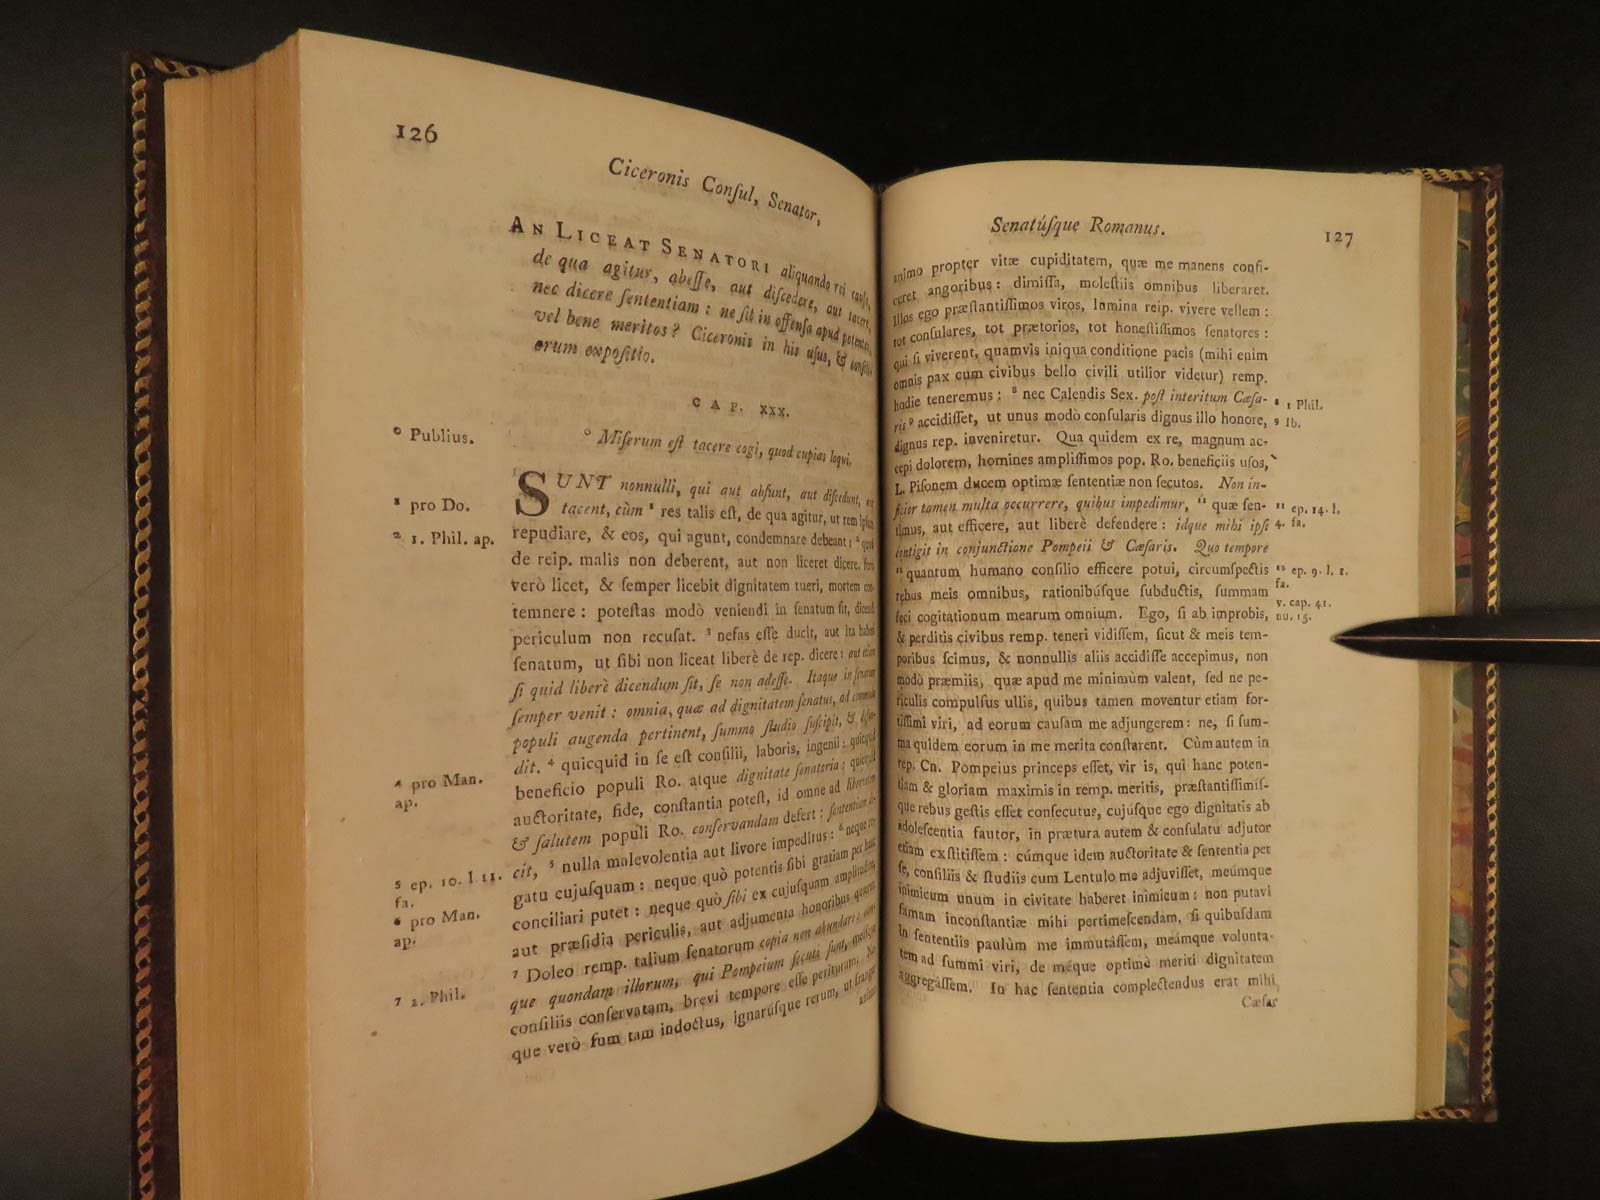 126
Ciceronis Conſul, Senator,
AN LICEAT SENATORI aliquando rei cauſa,
de qua agitur, abeſſe, aut diſcedere, aut tacere,
nec dicere ſententiam : ne ſit in offenſa apud potentes,
vel bene meritos? Ciceronis in his uſus, & conſili-
orum expoſitio.
CAP. XXX.
° Publius.
° Miſerum eſt tacere cogi, quod cupias loqui.
SUNT nonnulli, qui aut abſunt, aut diſcedunt, aut
¹ pro Do.
tacent, cùm ¹ res talis eſt, de qua agitur, ut rem ipſam
² 1. Phil. ap.
repudiare, & eos, qui agunt, condemnare debeant : ²
de reip. malis non deberent, aut non liceret dicere.
verò licet, & ſemper licebit dignitatem tueri, mortem con-
temnere : poteſtas modò veniendi in ſenatum ſit, dicendi
periculum non recuſat. ³ nefas eſſe ducit, aut ita haberi
ſenatum, ut ſibi non liceat liberè de rep. dicere : aut etiam
ſi quid liberè dicendum ſit, ſe non adeſſe. Itaque in ſenatum
ſemper venit : omnia, quæ ad dignitatem ſenatus, ad commoda
populi augenda pertinent, ſummo ſtudio ſuſcipit, &
dit. ⁴ quicquid in ſe eſt conſilii, laboris, ingenii : quicquid
⁴ pro Man.
ap.
beneficio populi Ro. atque dignitate ſenatoria ; quicquid
auctoritate, fide, conſtantia poteſt, id omne ad libertatem
& ſalutem populi Ro. conſervandam defert : ſententiam di-
⁵ ep. 10. l 11.
fa.
cit, ⁵ nulla malevolentia aut livore impeditus : ⁶ neque ro-
⁶ pro Man.
ap.
gatu cujuſquam : neque quò potentis ſibi gratiam per hanc
conciliari putet : neque quò ſibi ex cujuſquam amplitudine,
aut præſidia periculis, aut adjumenta honoribus quærat.
⁷ 2. Phil.
⁷ Doleo remp. talium ſenatorum copia non abundare :
que quondam illorum, qui Pompeium ſecuti ſunt,
conſiliis conſervatam, brevi tempore eſſe perituram.
que verò fum tam indoctus, ignarúſque rerum, ut frangar
animo
Senatúſque Romanus.
127
animo propter vitæ cupiditatem, quæ me manens confi-
ceret angoribus : dimiſſa, moleſtiis omnibus liberaret.
Illos ego præſtantiſſimos viros, lumina reip. vivere vellem :
tot conſulares, tot prætorios, tot honeſtiſſimos ſenatores :
qui ſi viverent, quamvis iniqua conditione pacis (mihi enim
omnis pax cum civibus bello civili utilior videtur) remp.
hodie teneremus : ⁸ nec Calendis Sex. poſt interitum Cæſa-
⁸ 1 Phil.
ris ⁹ accidiſſet, ut unus modò conſularis dignus illo honore,
⁹ Ib.
dignus rep. inveniretur. Qua quidem ex re, magnum ac-
cepi dolorem, homines ampliſſimos pop. Ro. beneficiis uſos,
L. Piſonem ducem optimæ ſententiæ non ſecutos. Non in-
ficior tamen multa occurrere, quibus impedimur, ¹¹ quæ ſen-
¹¹ ep. 14. l.
timus, aut efficere, aut liberè defendere : idque mihi ipſi
4. fa.
contigit in conjunctione Pompeii & Cæſaris. Quo tempore
¹² quantum humano conſilio efficere potui, circumſpectis
¹² ep. 9. l. 1.
fa.
rebus meis omnibus, rationibúſque ſubductis, ſummam
v. cap. 41.
feci cogitationum mearum omnium. Ego, ſi ab improbis,
nu. 15.
& perditis civibus remp. teneri vidiſſem, ſicut & meis tem-
poribus ſcimus, & nonnullis aliis accidiſſe accepimus, non
modò præmiis, quæ apud me minimùm valent, ſed ne pe-
riculis compulſus ullis, quibus tamen moventur etiam for-
tiſſimi viri, ad eorum cauſam me adjungerem : ne, ſi ſum-
ma quidem eorum in me merita conſtarent. Cùm autem in
rep. Cn. Pompeius princeps eſſet, vir is, qui hanc poten-
tiam & gloriam maximis in remp. meritis, præſtantiſſimiſ-
que rebus geſtis eſſet conſecutus, cujúſque ego dignitatis ab
adoleſcentia fautor, in prætura autem & conſulatu adjutor
etiam exſtitiſſem : cúmque idem auctoritate & ſententia per
ſe, conſiliis & ſtudiis cum Lentulo me adjuviſſet, meúmque
inimicum unum in civitate haberet inimicum : non putavi
famam inconſtantiæ mihi pertimeſcendam, ſi quibuſdam
in ſententiis paulùm me immutâſſem, meámque volunta-
tem ad ſummi viri, de méque optimè meriti dignitatem
aggregâſſem. In hac ſententia complectendus erat mihi
Cæſar